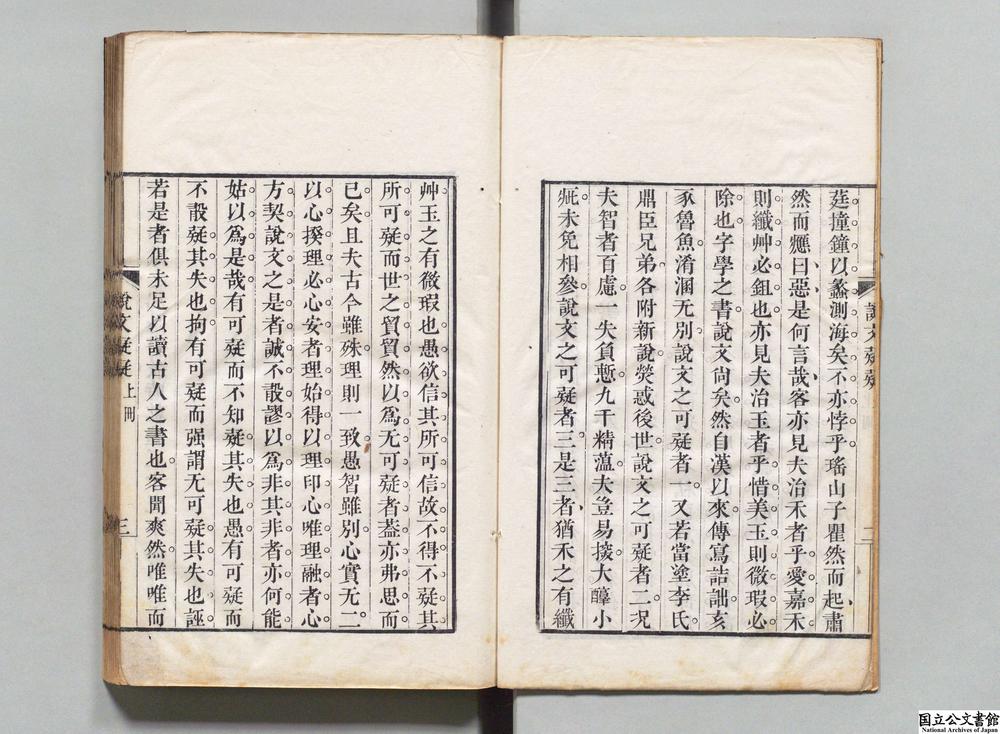 莛撞鐘以蠡測海矣不亦悖乎瑤山子瞿然而起肅
然而應曰惡是何言哉客亦見夫治禾者乎愛嘉禾
則纖艸必鉏也亦見夫治玉者乎惜美玉則微瑕必
除也字學之書說文尙矣然自漢以來傳寫詰詘亥
豕魯魚淆溷无別說文之可疑者一又若當塗李氏
鼎臣兄弟各附新說熒惑後世說文之可疑者二況
夫智者百慮一失負慙九千精蘊夫豈易接大醇小
疵未免相參說文之可疑者三是三者猶禾之有纖
說文疑疑
二
艸玉之有微瑕也愚欲信其所可信故不得不疑其
所可疑而世之貿貿然以為无可疑者葢亦弗思而
已矣且夫古今雖殊理則一致愚智雖別心實无二
以心揆理必心安者理始得以理印心唯理融者心
方契說文之是者誠不敢謬以為非其非者亦何能
姑以爲是哉有可疑而不知疑其失也愚有可疑而
不敢疑其失也拘有可疑而强謂无可疑其失也誣
若是者俱未足以讀古人之書也客聞爽然唯唯而
說文疑疑 上冊
三
国立公文書館
National Archives of Japan